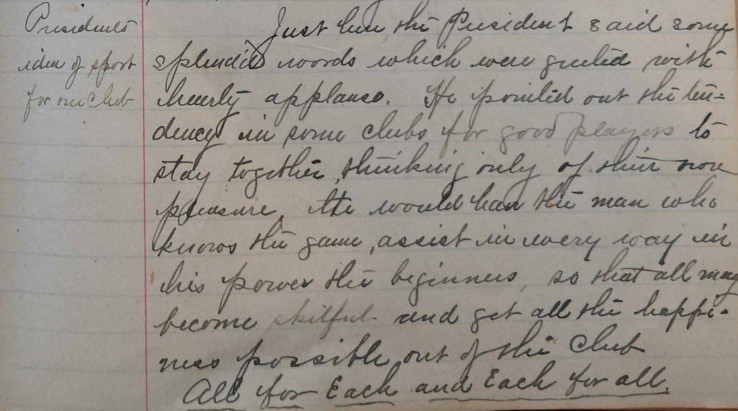 Presidents
idea of sport
for our club
Just here the President said some
splendid words which were greeted with
hearty applause. He pointed out the ten-
dency in some clubs for good players to
stay together, thinking only of their own
pleasure. He would have the man who
knows the game, assist in every way in
his power the beginners, so that all may
become skilful and get all the happi-
ness possible out of the club
All for Each and Each for all.